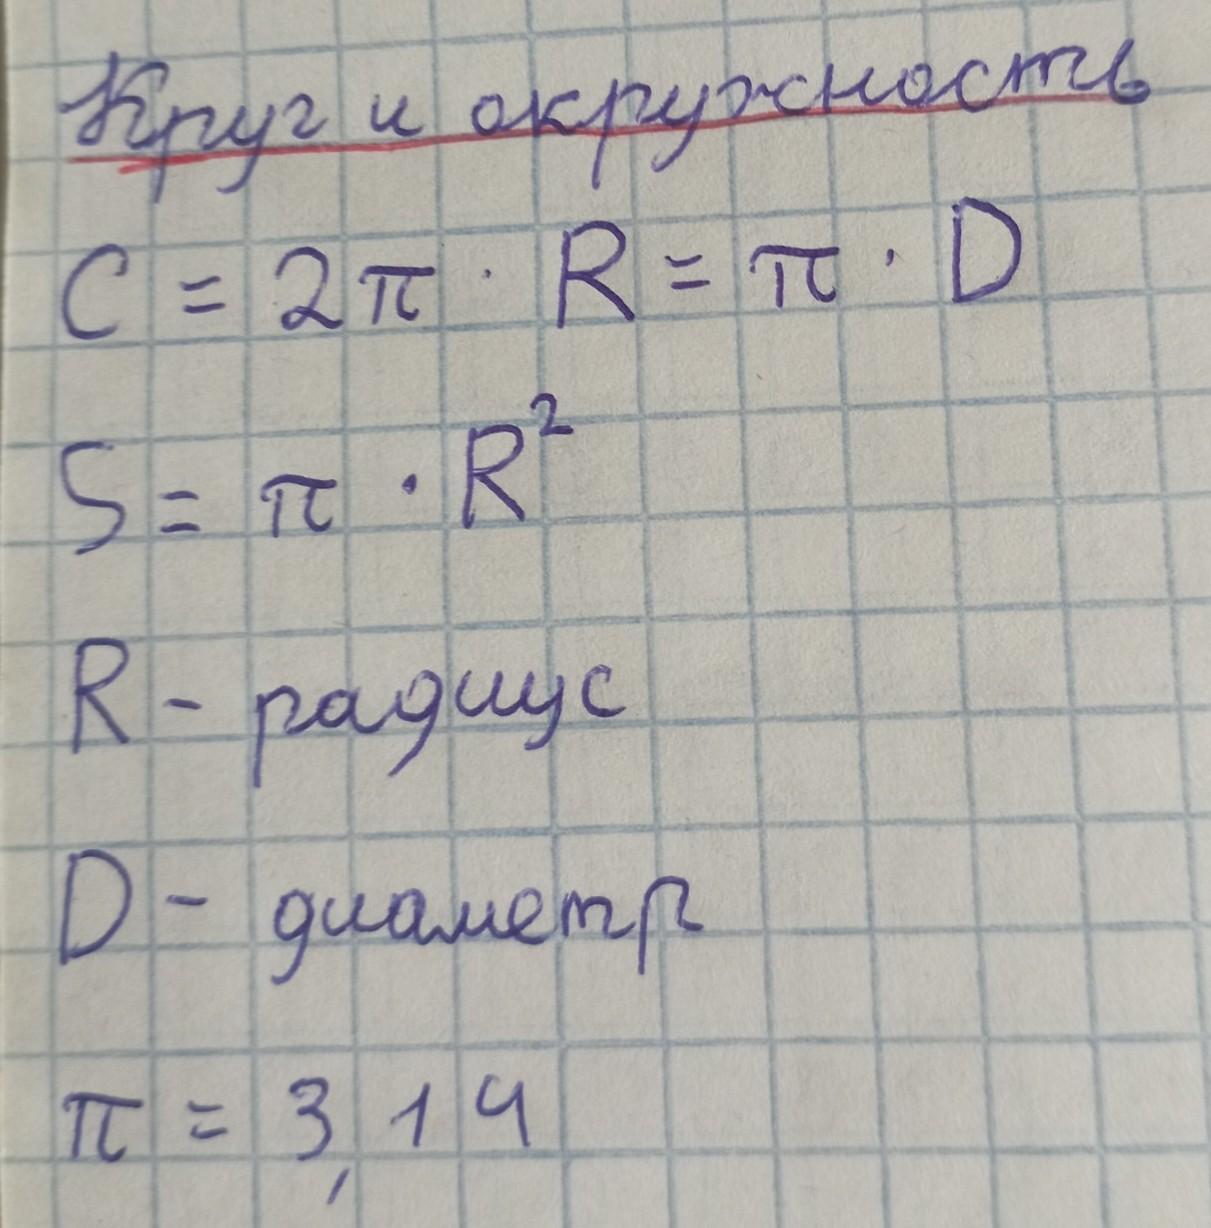 Круг и окружность
C = 2π · R = π · D
S = π · R²
R - радиус
D - диаметр
π = 3,14